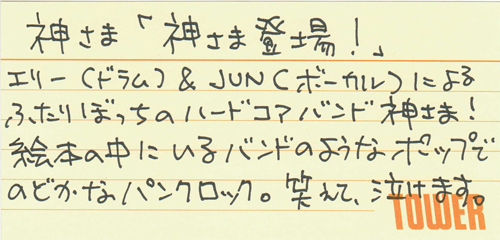 神さま「神さま登場!」
エリー(ドラム)& JUN(ボーカル)による
ふたりぼっちのハードコアバンド神さま!
絵本の中にいるバンドのようなポップで
のどかなパンクロック。笑えて、泣けます。
TOWER